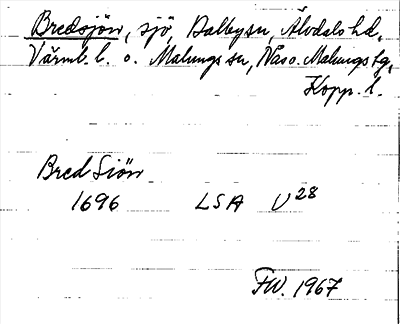 Bredsjön, sjö, Dalby sn, Älvdals hd,
Värml. l. o. Malungs sn, Nås o. Malungs tg,
Kopp. l.
Bred Siön
1696 LSA U28
FW. 1967